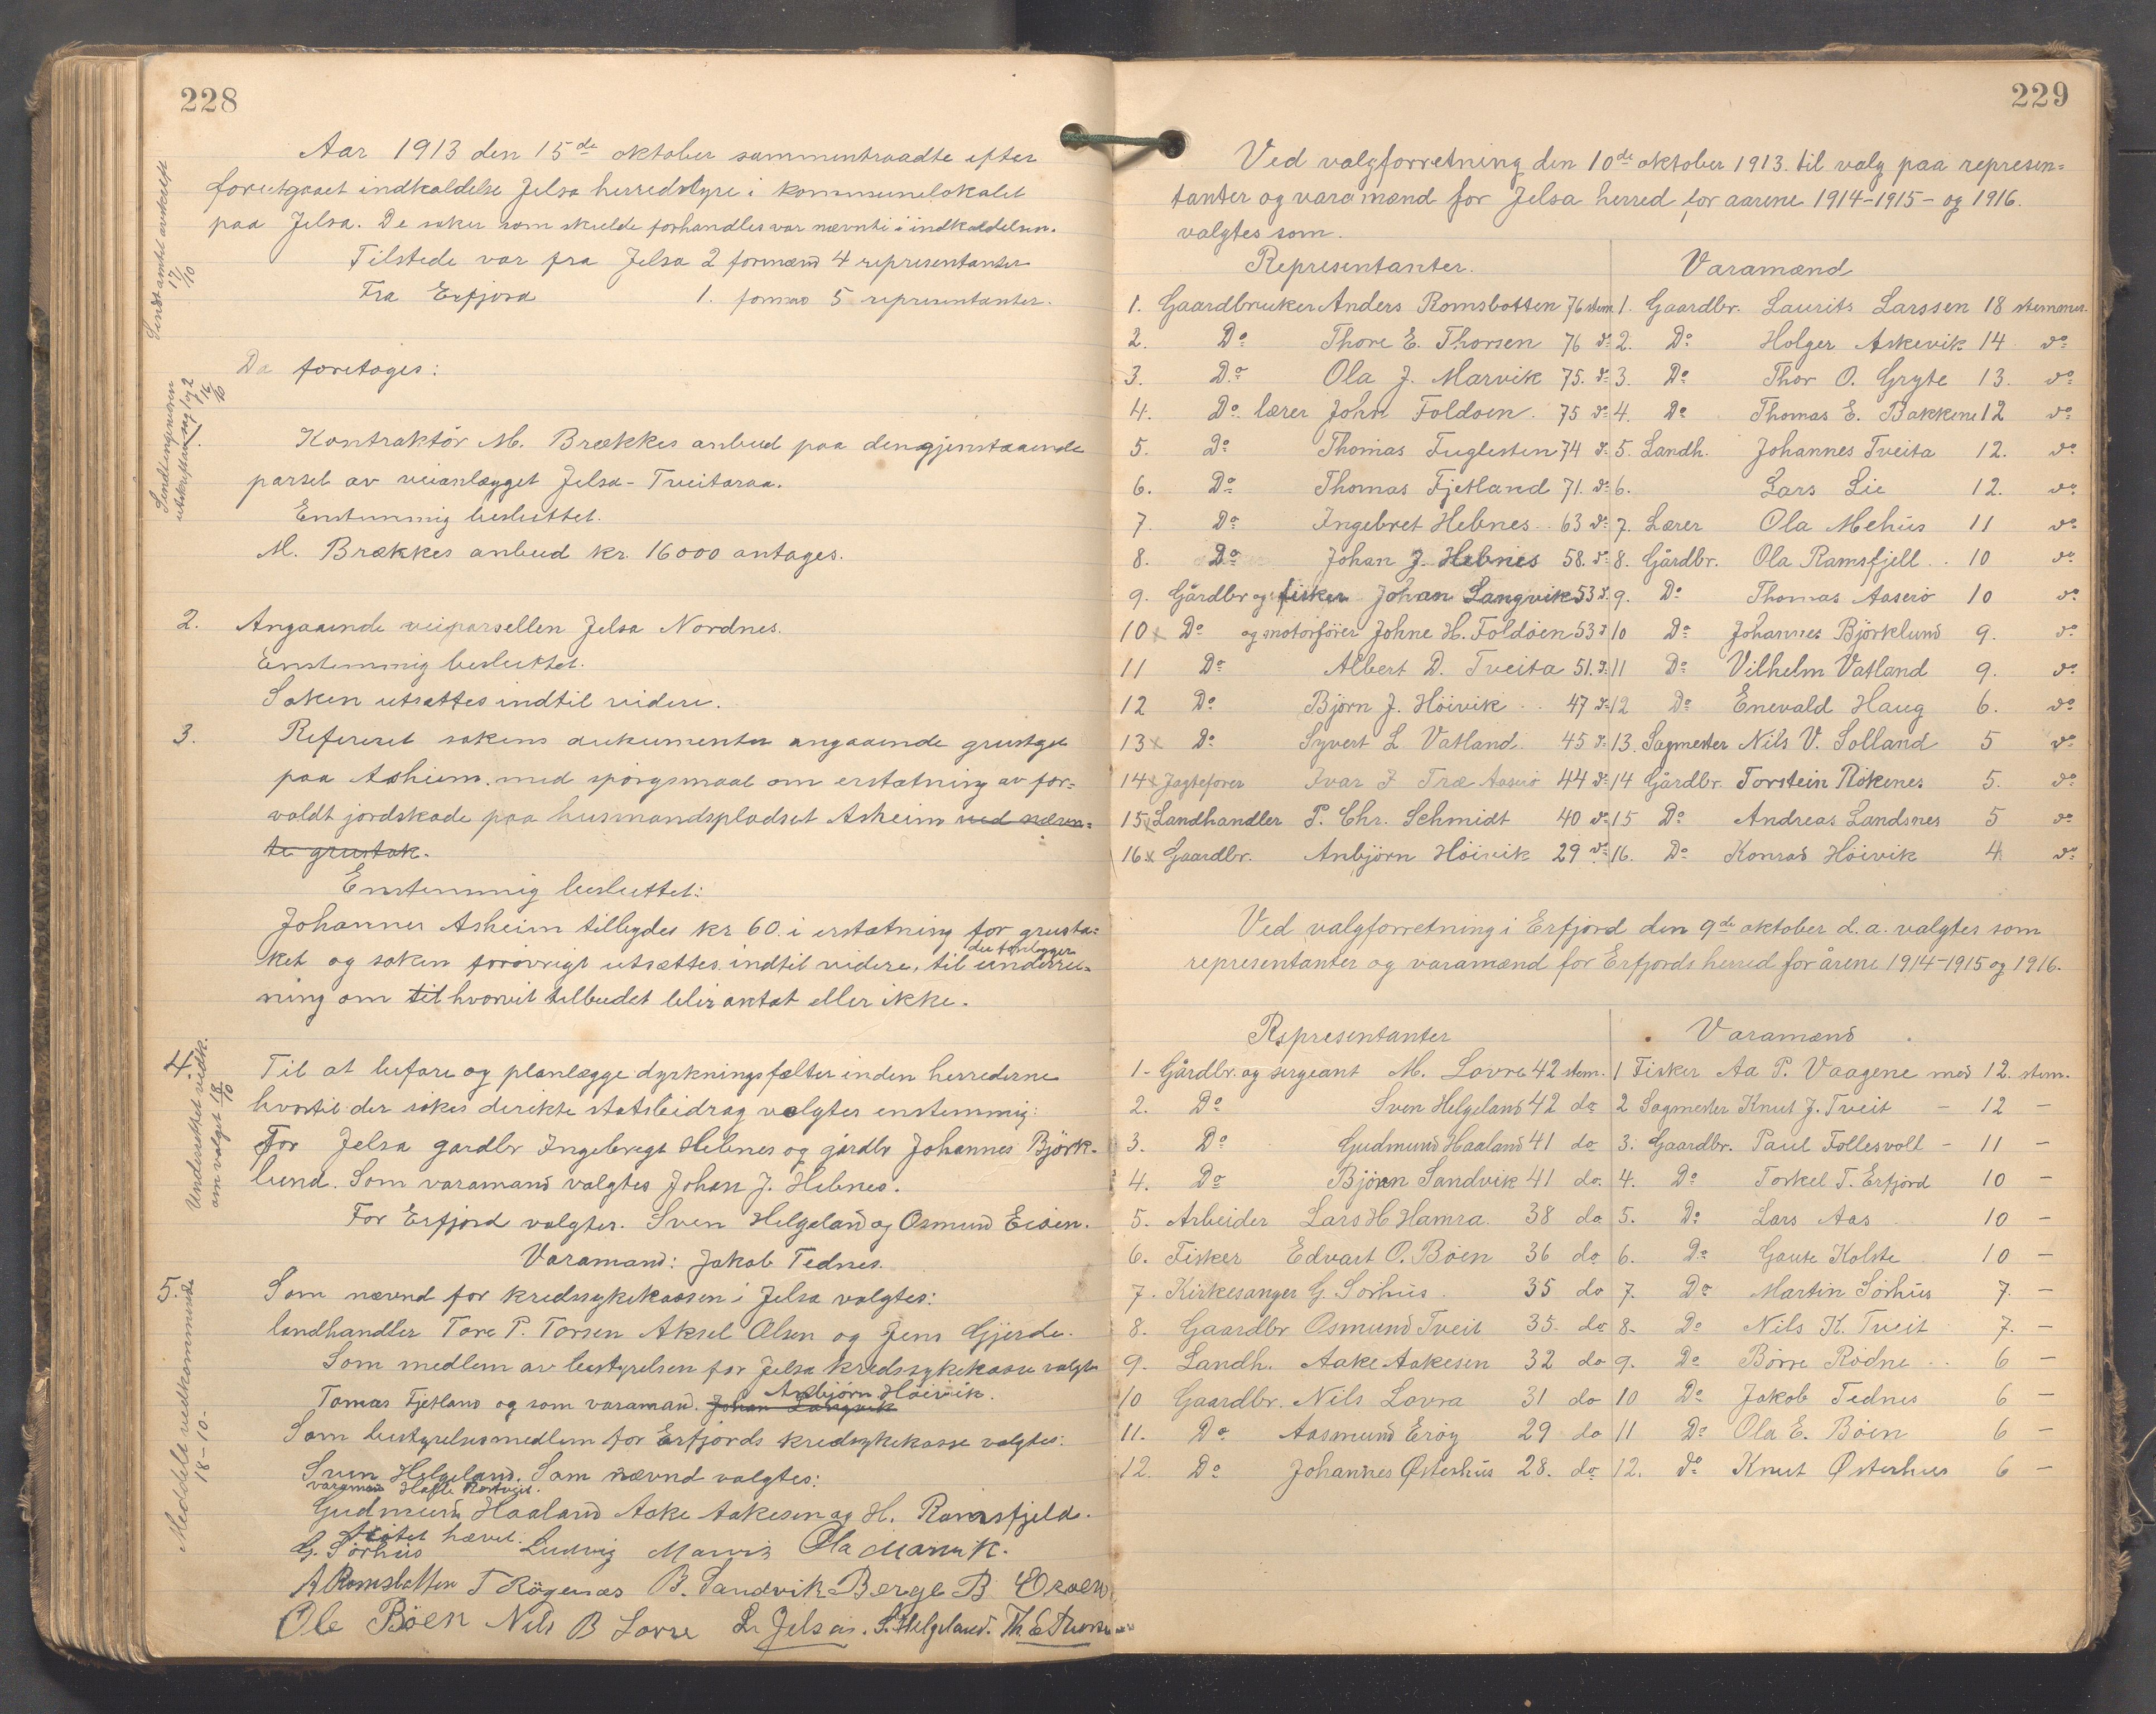 228
Aar 1913 den 15de oktober sammentraadte efter
forutgaaet indkaldelse Jelsa herredstyre i kommunelokalet
paa Jelsa. De saker som skulde forhandles var nævnt i indkaldelsen.
Tilstede var fra Jelsa 2 formænd 4 representanter
Fra Erfjord 1. formand 5 representanter.
Sendt amtet avskrift 17/10
Da foretages:
Sendt ingeniøren utskrift av sag 1 og 2 16/10
1.
Kontraktör M. Brækkes anbud paa den gjenstaaende
parsel av veianlægget Jelsa - Tveitaraa.
Enstemmig besluttet.
M. Brækkes anbud kr. 16000 antages.
2. Angaaende veiparsellen Jelsa Nordnes.
Enstemmig besluttet.
Saken utsættes indtil videre.
3. Refereret sakens dokumenter angaaende grustak
paa Asheim med spörgsmaal om erstatning av for=
voldt jordskade paa husmandspladset Asheim ved nævn=
te grustak.
Enstemmig besluttet:
Johannes Asheim tilbydes kr 60. i erstatning for grusta=
ket og saken forövrigt utsættes indtil videre, til der foreligger underret=
ning om til hvorvit tilbudet blir antat eller ikke.
4. Til at befare og planlægge dyrkningsfelter inden herrederne
hvortil der søkes direkte statsbidrag valgtes enstemmig:
For Jelsa gardbr Ingebregt Hebnes og gårdbr Johannes Björk-
lund. Som varamand valgtes Johan J. Hebnes.
For Erfjord valgtes. Sven Helgeland og Osmund Eröen.
Varamand: Jakob Tednes.
Underrettet vedk. om valget 18/10
5. Som nævnd for kredssykekassen i Jelsa valgtes:
landhandler Tore P. Torsen Aksel Olsen og Jens Gjerde.
Som medlem av bestyrelsen for Jelsa kredssykekasse valgtes
Tomas Fjetland og som varamand. Johan Langvik Anbjörn Höivik.
Som bestyrelsesmedlem for Erfjords kredssykekasse valgtes:
Sven Helgeland. Som nævnd valgtes:
varamand
Gudmund Haaland Aake Aakesen og H. Ramsfjeld.
Meddelt vedkommende 18-10-
Mötet hævet.
G. Sörhus Ludvig Marvik Ola Marvik.
A Romsbotten T Rögenæs B. Sandvik Berge B Eröen
Ole Böen Nils B Lovre L. Jelsa. S. Helgeland. Th. E Thorsen
229
Ved valgforretning den 10de oktober 1913. til valg paa represen=
tanter og varamænd for Jelsa herred for aarene 1914-1915- og 1916.
valgtes som.
Representanter. Varamænd
1. Gaardbruker Anders Romsbotten 76 stem 1. Gaardbr. Laurits Larssen 18 stemmer.
2. Do Thore E. Thorsen 76 do 2. Do Holger Askevik 14 do
3. Do Ola J. Marvik 75. do 3. Do Thor O. Gryte 13. do
4. Do lærer John Foldøen. 75 do 4. Do Thomas E. Bakkene 12 do
5. Do Thomas Fuglesten 74 do 5. Landh. Johannes Tveita 12. do
6. Do Thomas Fjetland 71. do 6. Lars Lie 12. do
7. Do Ingebret Hebnes 63 do 7. Lærer Ola Mehus 11 do
8. Do Johan J. Hebnes 58. do 8. Gårdbr. Ola Ramsfjell 10 do
9. Gårdbr og fisker Johan Langvik 53 do 9. Do Thomas Aaserö 10 do
10x Do og motorförer Johne H. Foldöen 53 do 10 Do Johannes Björklund 9. do
11 Do Albert D. Tveita 51. do 11 Do Vilhelm Vatland 9. do
12 Do Björn J. Höivik 47 do 12 Do Enevald Haug 6. do
13x Do Syvert L Vatland 45 do 13. Sagmester Nils V. Solland 5 do
14x Jagtefører Ivar I Træ Aaserö 44 do 14 Gårdbr. Torstein Rökenes 5. do
15x Landhandler P. Chr. Schmidt 40 do 15 Do Andreas Landsnes 5 do
16x Gaardbr. Anbjörn Höivik 29 do 16. Do Konrad Höivik 4 do
Ved valgforretning i Erfjord den 9de oktober d.a. valgtes som
representanter og varamænd for Erfjords herred for årene 1914-1915 og 1916.
Representanter Varamænd
1- Gårdbr. og sergeant M. Lovre 42 stem. 1 Fisker Aa P. Vaagene med 12. stem.
2. Do Sven Helgeland 42 do 2 Sagmester Knut J. Tveit - 12 -
3. Do Gudmund Haaland 41 do 3. Gaardbr. Paul Follesvolt - 11 -
4. Do Björn Sandvik 41 do. 4. Do Torkel T. Erfjord 10 -
5. Arbeider Lars H Hamra. 38 do 5. Do Lars Aas 10 -
6. Fisker Edvart O. Böen 36 do 6. Do Gaute Kolste 10 -
7. Kirkesanger G. Sörhus. 35 do 7. Do Martin Sörhus 7. -
8. Gaardbr Osmund Tveit 35. do 8. Do Nils K. Tveit 7. -
9. Landh. Aake Aakesen 32 do 9. Do Börre Rödne 6 -
10 Gaardbr. Nils Lovra 31 do 10 Do Jakob Tednes 6 -
11. Do Aasmund Eröy 29 do 11 Do Ola E. Böen 6 -
12. Do Johannes Østerhus 28. do 12. do Knut Østerhus 6 -